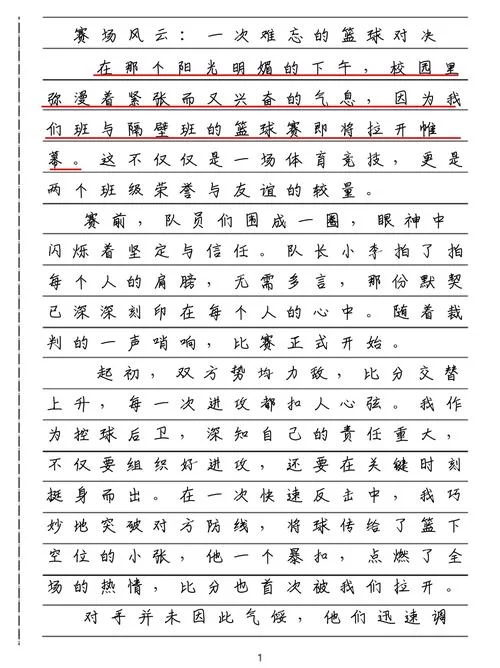 赛场风云：一次难忘的篮球对决
在那个阳光明媚的下午，校园里
弥漫着紧张而又兴奋的气息，因为我
们班与隔壁班的篮球赛即将拉开帷
幕。这不仅仅是一场体育竞技，更是
两个班级荣誉与友谊的较量。
赛前，队员们围成一圈，眼神中
闪烁着坚定与信任。队长小李拍了拍
每个人的肩膀，无需多言，那份默契
已深深刻印在每个人的心中。随着裁
判的一声哨响，比赛正式开始。
起初，双方势均力敌，比分交替
上升，每一次进攻都扣人心弦。我作
为控球后卫，深知自己的责任重大，
不仅要组织好进攻，还要在关键时刻
挺身而出。在一次快速反击中，我巧
妙地突破对方防线，将球传给了篮下
空位的小张，他一个暴扣，点燃了全
场的热情，比分也首次被我们拉开。
对手并未因此气馁，他们迅速调
1